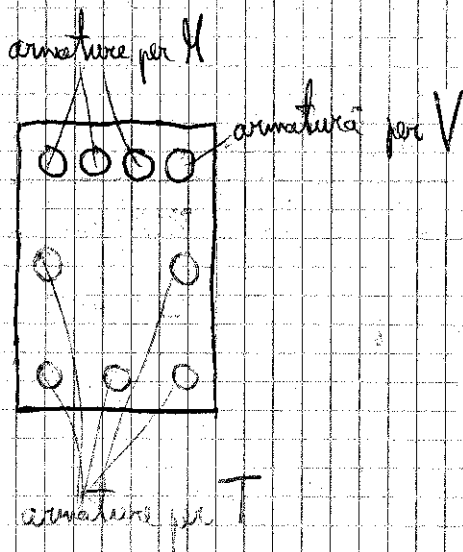 armature per M
armatura per V
armature per T